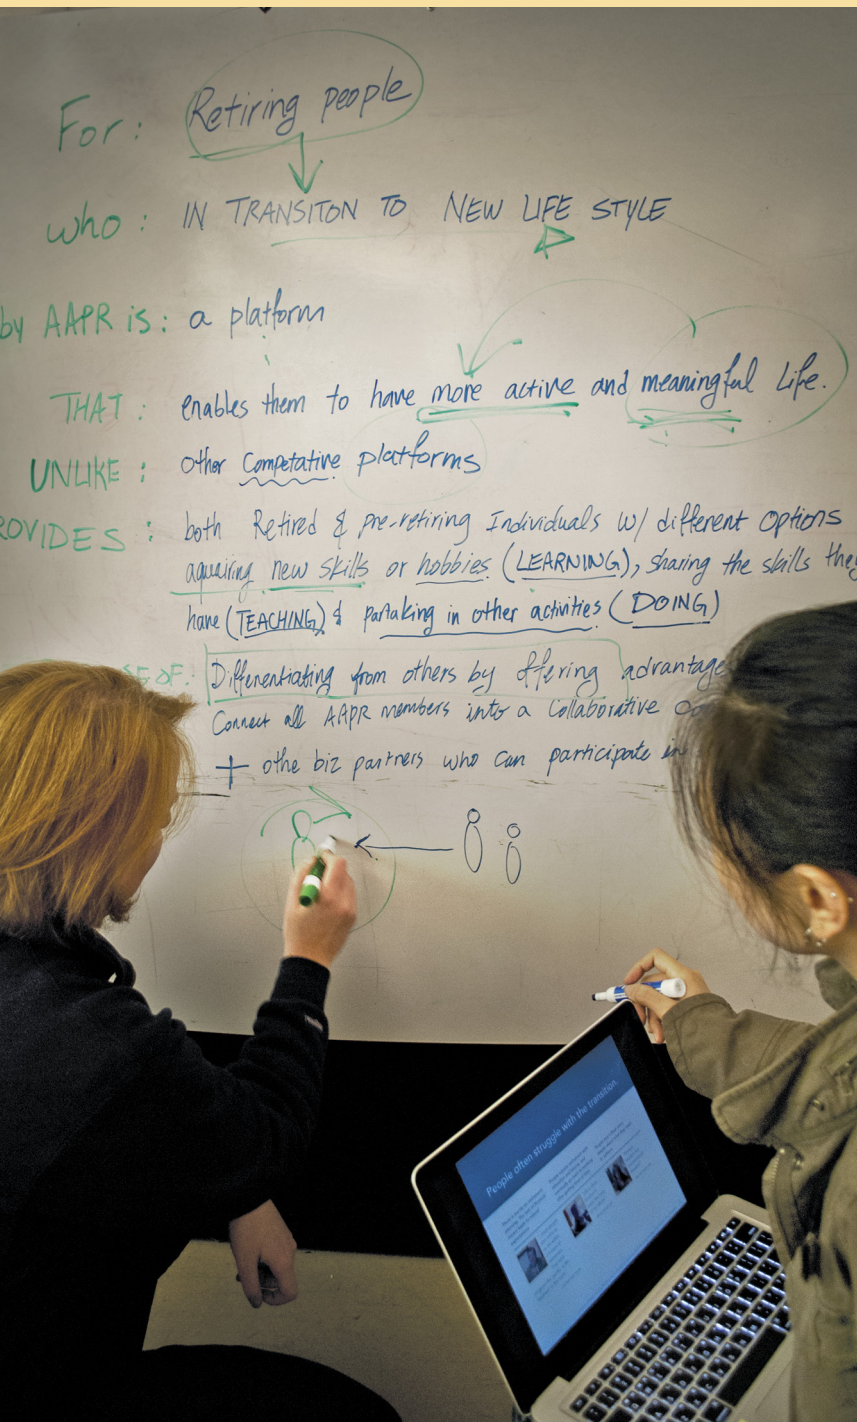 For: Retiring people
who: IN TRANSITON TO NEW LIFE STYLE
by AAPR is: a platform
THAT: enables them to have more active and meaningful Life.
UNLIKE: other Competative platforms
ROVIDES: both Retired & pre-retiring Individuals w/ different options
aquairing new skills or hobbies (LEARNING), sharing the skills they
have (TEACHING) & partaking in other activities (DOING)
SE OF: Differentiating from others by offering advantage
Connect all AAPR members into a Collaborative
+ othe biz partners who can participate in
People often struggle with the transition.